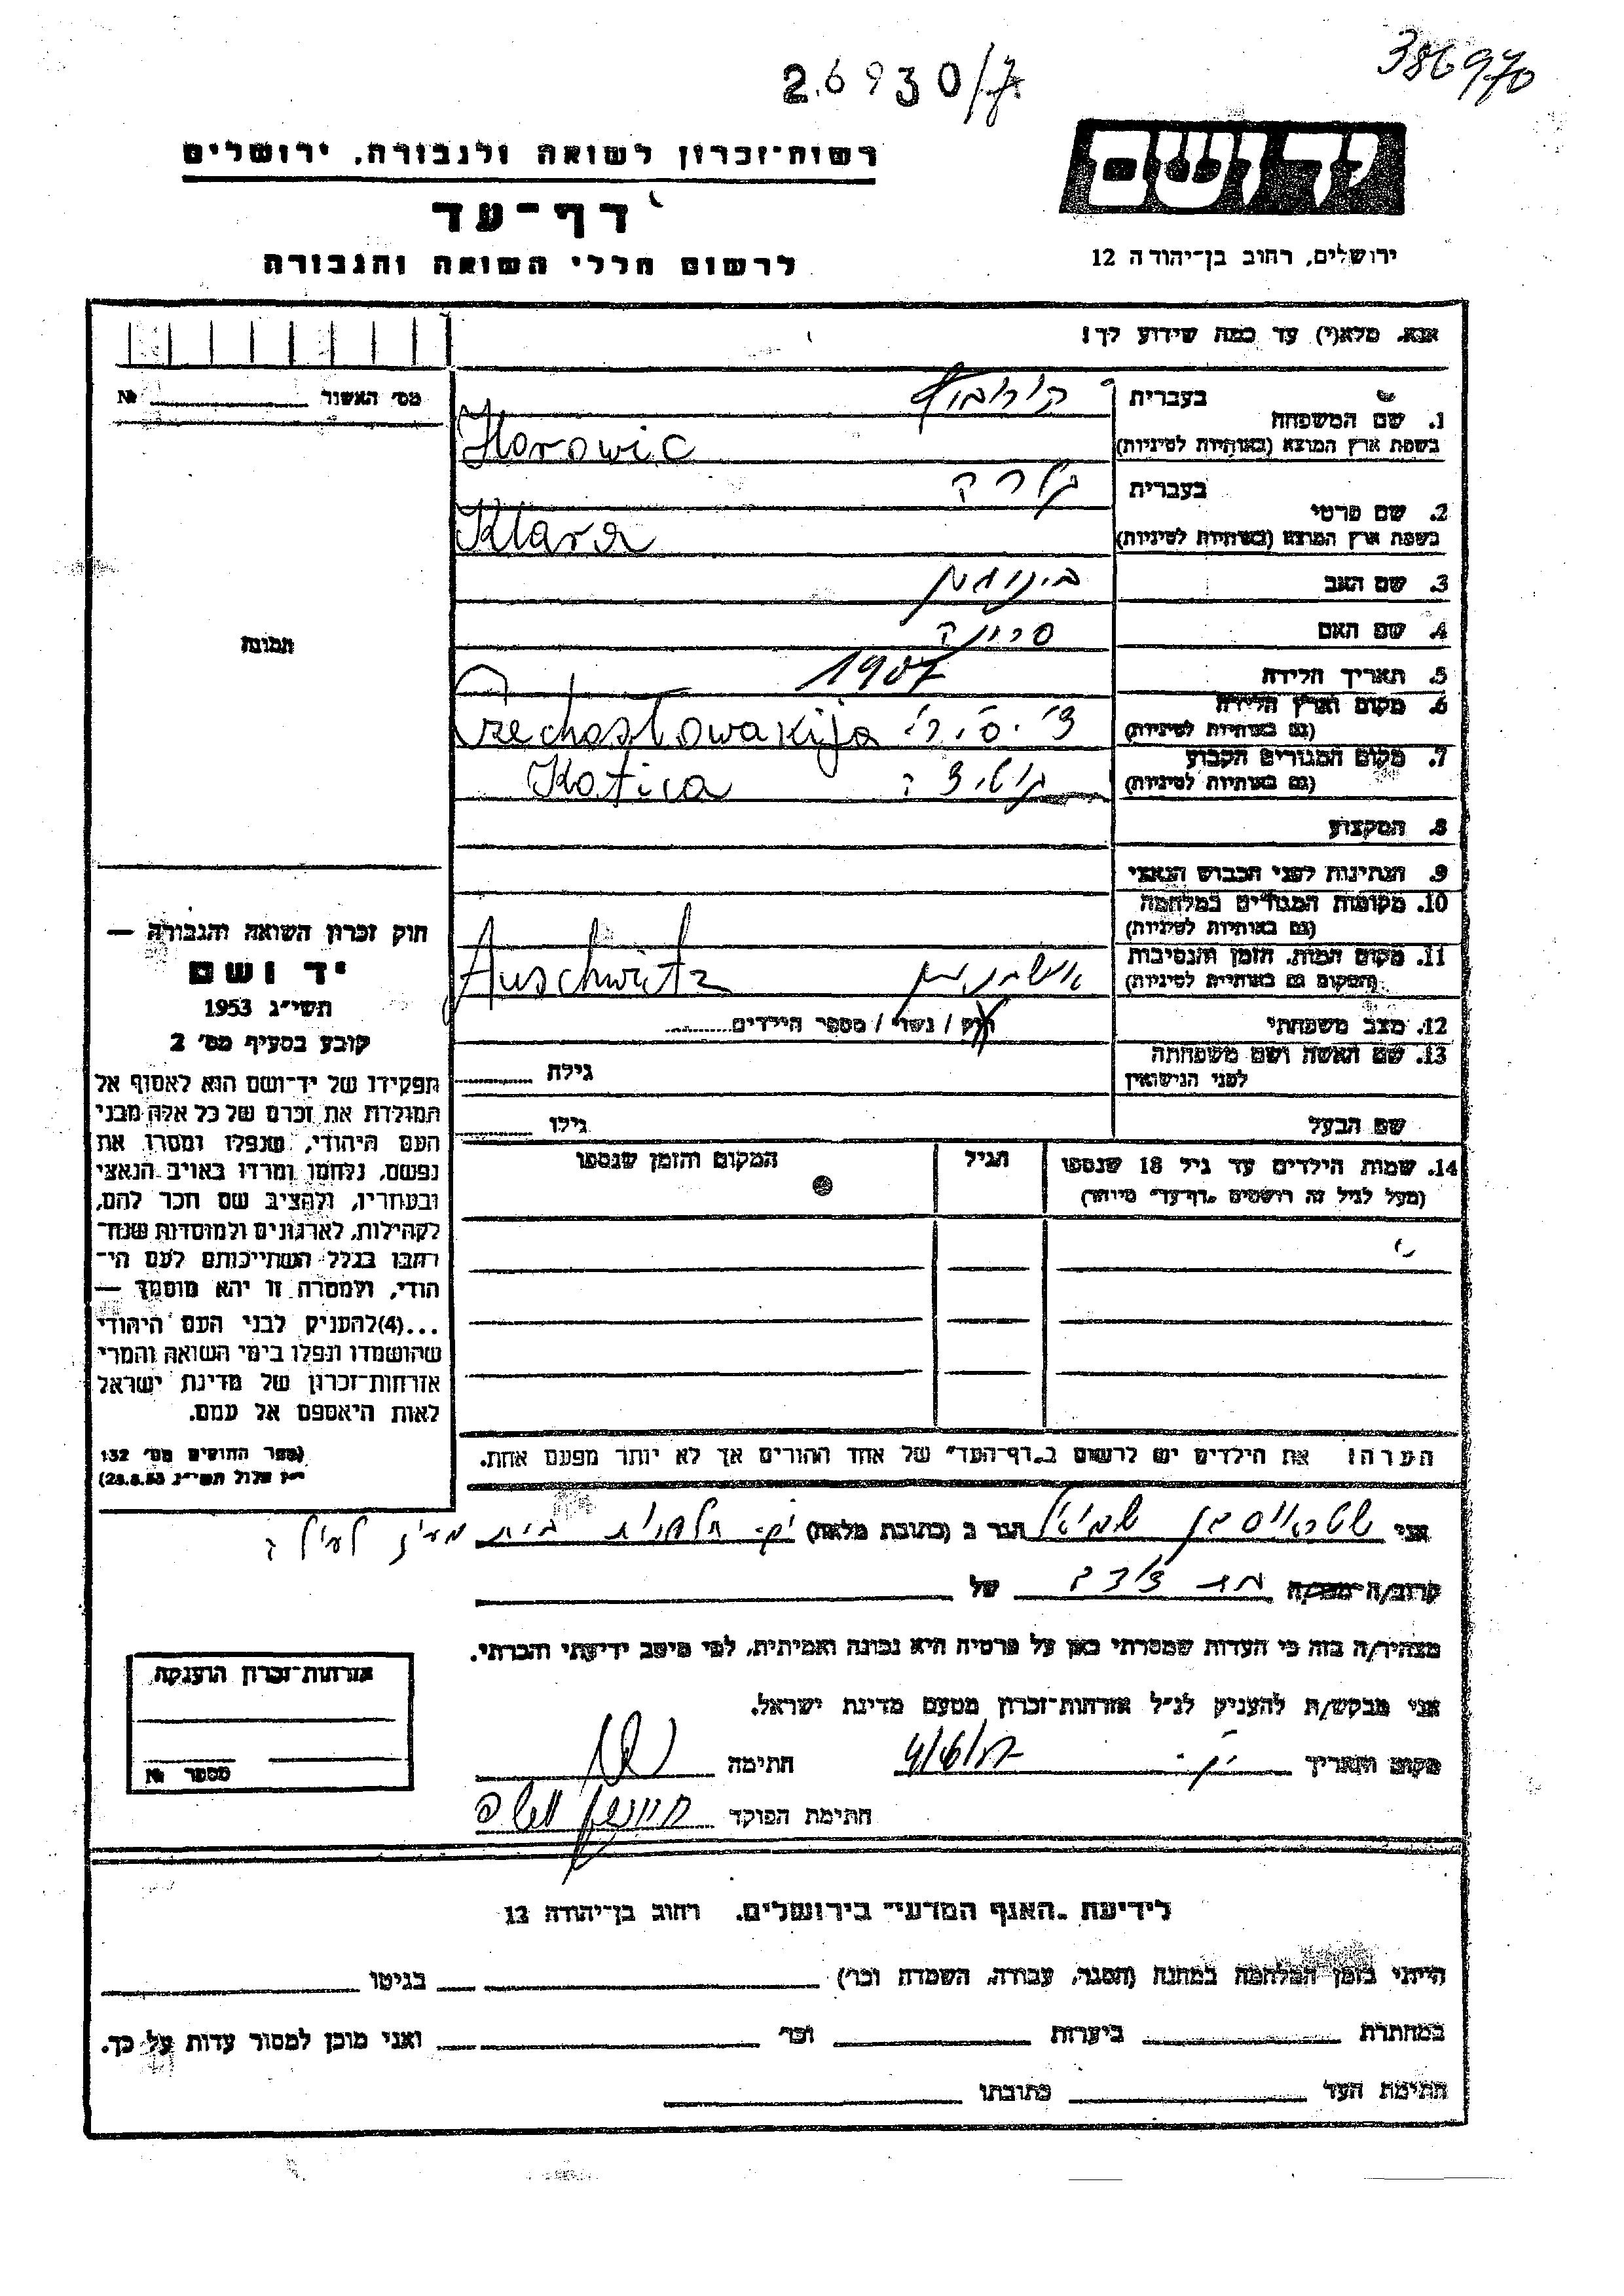 26930/7
386970
יד ושם
רשות־זכרון לשואה ולגבורה, ירושלים
דף־עד
לרשום חללי השואה והגבורה
ירושלים, רחוב בן־יהודה 12
אנא, מלא(י) עד כמה שידוע לך!
מס' האשור № 
1. שם המשפחה
בעברית
בשפת ארץ המוצא (באותיות לטיניות)
Horowic
2. שם פרטי
בעברית קלרה
בשפת ארץ המוצא (באותיות לטיניות)
Klara
3. שם האב בינימין
4. שם האם
5. תאריך הלידה 1907
6. מקום וארץ הלידה
(גם באותיות לטיניות)
צ'.ס.ר. Czechosłowakija
7. מקום המגורים הקבוע
(גם באותיות לטיניות)
Kotica
8. המקצוע
9. הנתינות לפני הכבוש הנאצי
10. מקומות המגורים במלחמה
(גם באותיות לטיניות)
11. מקום המות, הזמן והנסיבות
(המקום גם באותיות לטיניות)
Auschwitz
12. מצב משפחתי רוק / נשוי / מספר הילדים
13. שם האשה ושם משפחתה
לפני הנישואין
גילה
שם הבעל גילו
14. שמות הילדים עד גיל 18 שנספו הגיל המקום והזמן שנספו
(מעל לגיל זה רושמים „דף־עד" מיוחד)
הערה: את הילדים יש לרשום ב„דף־העד" של אחד ההורים אך לא יותר מפעם אחת.
תמונה
חוק זכרון השואה והגבורה —
יד ושם
תשי"ג 1953
קובע בסעיף מס' 2
תפקידו של יד־ושם הוא לאסוף אל
המולדת את זכרם של כל אלה מבני
העם היהודי, שנפלו ומסרו את
נפשם, נלחמו ומרדו באויב הנאצי
ובעוזריו, ולהציב שם וזכר להם,
לקהילות, לארגונים ולמוסדות שנח־
רבו בגלל השתייכותם לעם הי־
הודי, ולמטרה זו יהא מוסמך —
...(4) להעניק לבני העם היהודי
שהושמדו ונפלו בימי השואה והמרי
אזרחות־זכרון של מדינת ישראל
לאות היאספם אל עמם.
(ספר החוקים מס' 132
י"ז אלול תשי"ג 28.8.53)
אני שטראוסמן שמואל הגר ב (כתובת מלאה)
קרוב/ה־מכר/ה של
מצהיר/ה בזה כי העדות שמסרתי כאן על פרטיה היא נכונה ואמיתית, לפי מיטב ידיעתי והכרתי.
אני מבקש/ת להעניק לנ"ל אזרחות־זכרון מטעם מדינת ישראל.
מקום ותאריך חתימה
חתימת הפוקד
אזרחות־זכרון הוענקה
מספר №
לידיעת „האגף המדעי" בירושלים, רחוב בן־יהודה 12
הייתי בזמן המלחמה במחנה (הסגר, עבודה, השמדה וכו') בגיטו
במחתרת ביערות וכו' ואני מוכן למסור עדות על כך.
חתימת העד כתובתו